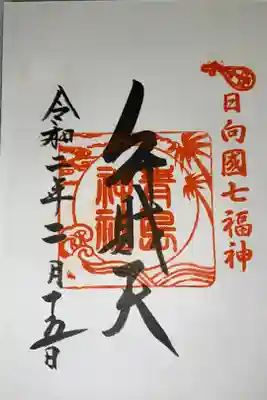 日向國七福神
弁財天
青島神社
令和二年二月十五日